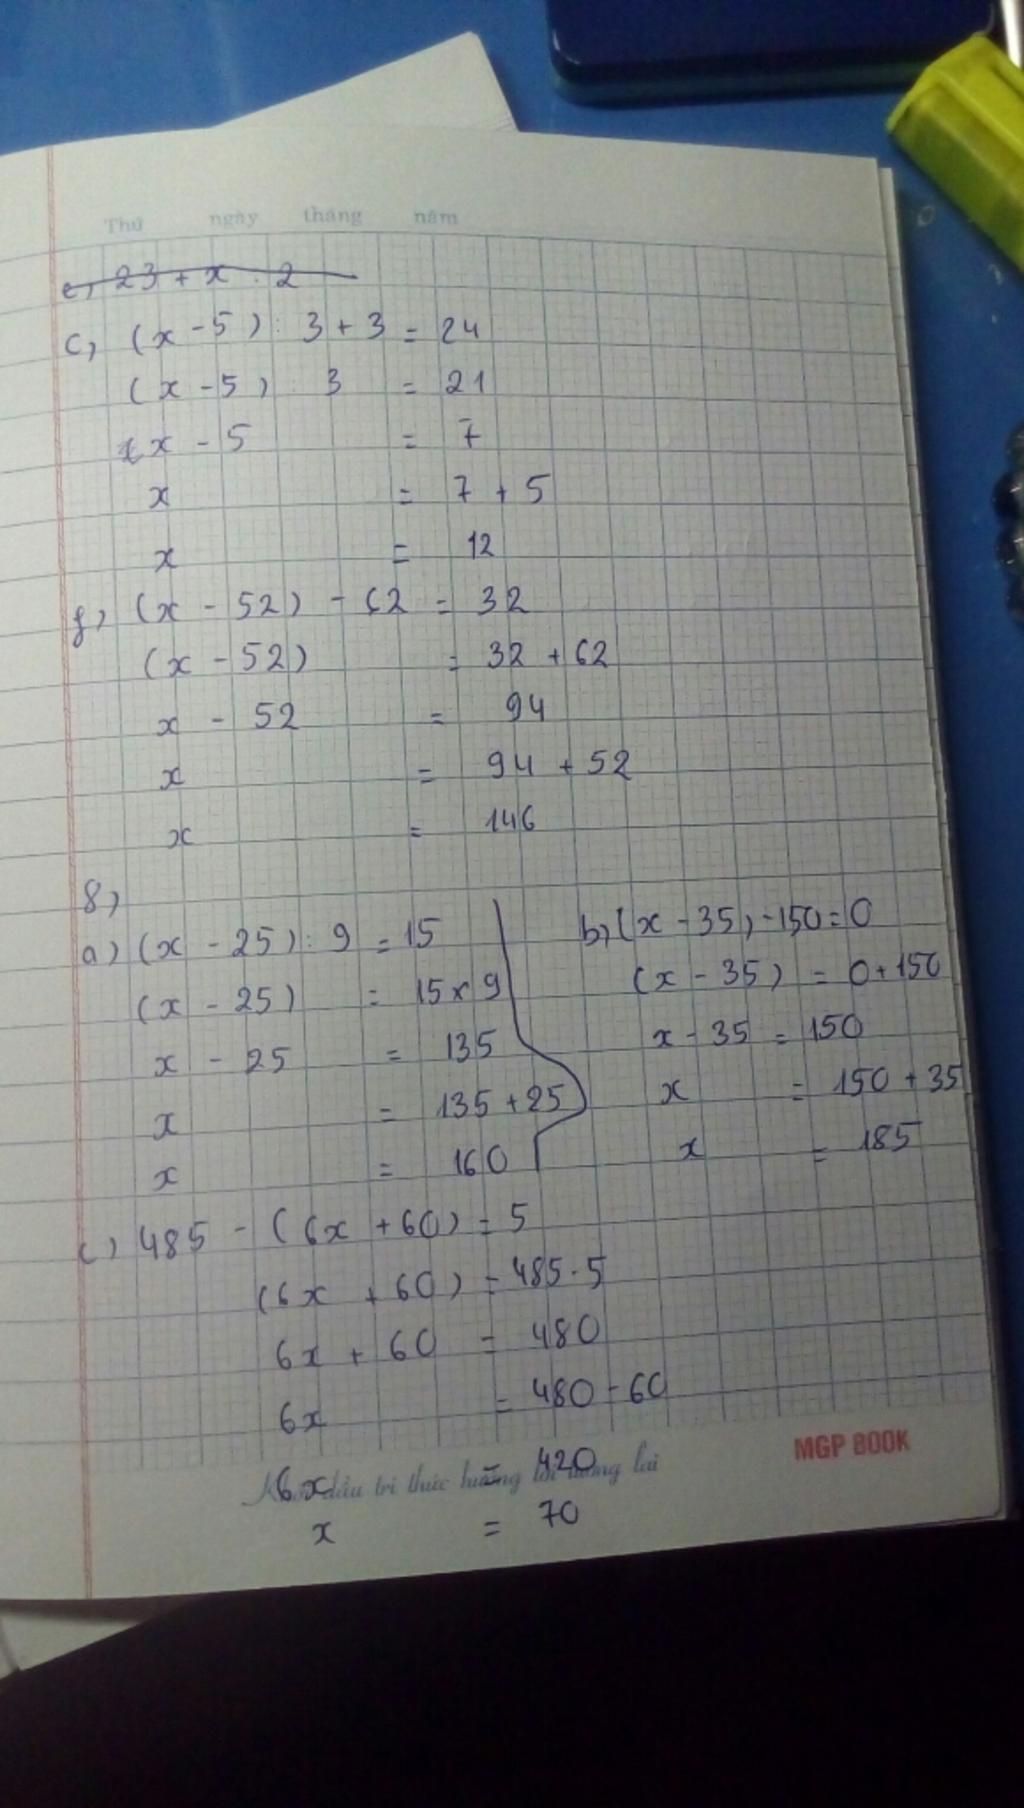 Thứ ngày tháng năm
e, 23 + x . 2
c, (x - 5) : 3 + 3 = 24
(x - 5) : 3 = 21
x - 5 = 7
x = 7 + 5
x = 12
f, (x - 52) - 62 = 32
(x - 52) = 32 + 62
x - 52 = 94
x = 94 + 52
x = 146
8,
a) (x - 25) : 9 = 15
(x - 25) = 15 x 9
x - 25 = 135
x = 135 + 25
x = 160
b, (x - 35) - 150 = 0
(x - 35) = 0 + 150
x - 35 = 150
x = 150 + 35
x = 185
c) 485 - (6x + 60) = 5
(6x + 60) = 485 - 5
6x + 60 = 480
6x = 480 - 60
MGP BOOK
6x = 420
x = 70